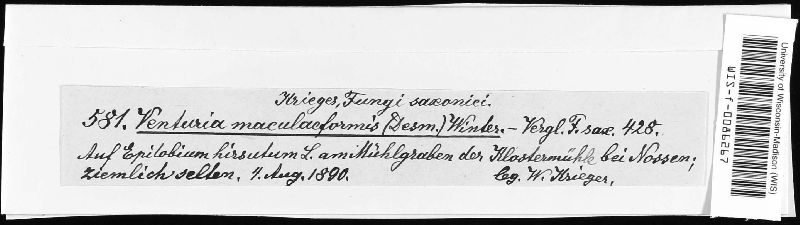 Krieger, Fungi saxonici.
581. Venturia maculaeformis (Desm.) Winter. – Vergl. F. sax. 428.
Auf Epilobium hirsutum L. am Mühlgraben der Klostermühle bei Nossen;
ziemlich selten. 4. Aug. 1890. leg. W. Krieger.
University of Wisconsin-Madison (WIS)
WIS-f-0086267